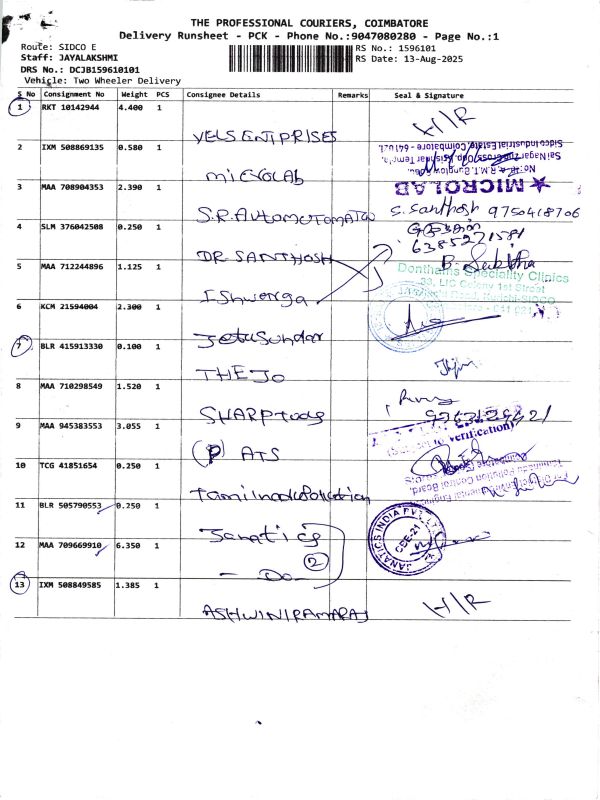 THE PROFESSIONAL COURIERS, COIMBATORE
Delivery Runsheet - PCK - Phone No.:9047080280 - Page No.:1
Route: SIDCO E
RS No.: 1596101
Staff: JAYALAKSHMI
RS Date: 13-Aug-2025
DRS No.: DCJB159610101
Vehicle: Two Wheeler Delivery
S No Consignment No Weight PCS Consignee Details Remarks Seal & Signature
1 RKT 10142944 4.400 1
YELS ENTPRISES H/R
2 IXM 508869135 0.580 1
microlab
MICROLAB
3 MAA 708904353 2.390 1
S.R.Automotomation S. Santhosh 9750418706
4 SLM 376042508 0.250 1
DR SANTHOSH 6385221581
5 MAA 712244896 1.125 1
Donthams Speciality Clinics
33, LIC Colony 1st Street
Ishwarya
6 KCM 21594004 2.300 1
Jetu Sundar
7 BLR 415913330 0.100 1
THEJO
8 MAA 710298549 1.520 1
SHARP tools
9 MAA 945383553 3.055 1
verification)
(P) ATS
10 TCG 41851654 0.250 1
Tamilnadu Pollution
11 BLR 505790553 0.250 1
Janatics
JANATICS INDIA PVT. LTD
CBE-21
12 MAA 709669910 6.350 1
2
- Do -
13 IXM 508849585 1.385 1
ASHWINI RAMARAJ H/R